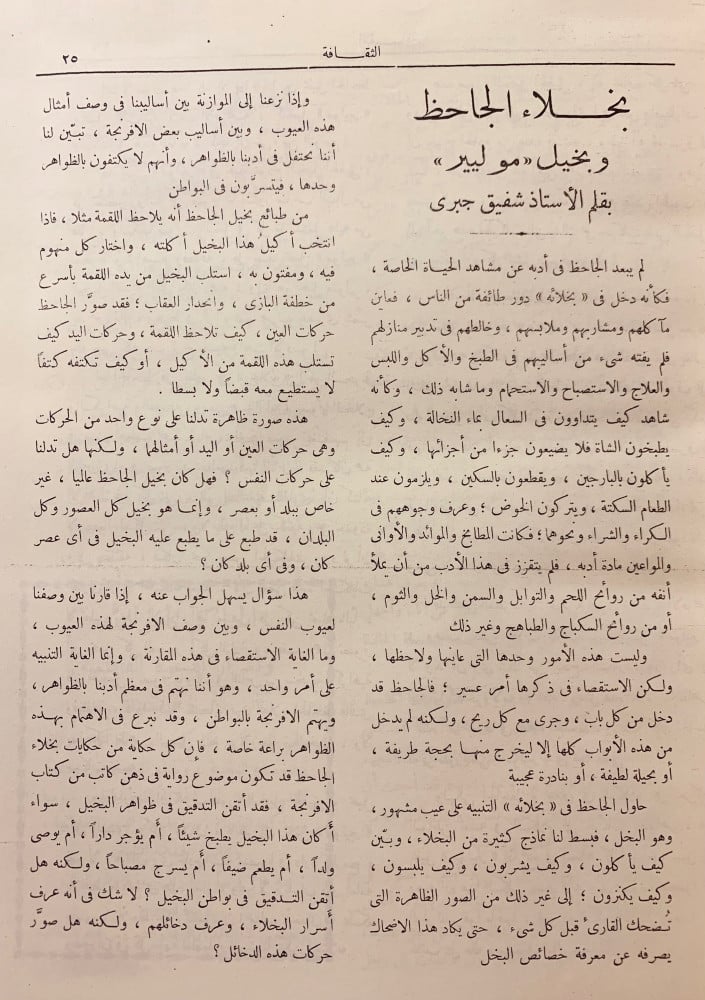 الثقافة
٢٥
بخلاء الجاحظ
وبخيل «موليير»
بقلم الأستاذ شفيق جبرى
لم يبعد الجاحظ فى أدبه عن مشاهد الحياة الخاصة ،
فكأنه دخل فى « بخلائه » دور طائفة من الناس ، فعاين
مآكلهم ومشاربهم وملابسهم ، وخالطهم فى تدبير منازلهم
فلم يفته شىء من أساليبهم فى الطبخ والأكل واللبس
والعلاج والاستصباح والاستحمام وما شابه ذلك ، وكأنه
شاهد كيف يتداوون فى السعال بماء النخالة ، وكيف
يطبخون الشاة فلا يضيعون جزءا من أجزائها ، وكيف
يأكلون بالبارجين ، ويقطعون بالسكين ، ويلزمون عند
الطعام السكتة ، ويتركون الخوض ؛ وعرف وجوههم فى
الكراء والشراء ونحوهما ؛ فكانت المطابخ والموائد والأوانى
والمواعين مادة أدبه ، فلم يتقزز فى هذا الأدب من أن يملأ
أنفه من روائح اللحم والتوابل والسمن والخل والثوم ،
أو من روائح السكباج والطباهج وغير ذلك
وليست هذه الأمور وحدها التى عاينها ولاحظها ،
ولكن الاستقصاء فى ذكرها أمر عسير ؛ فالجاحظ قد
دخل من كل باب ، وجرى مع كل ريح ، ولكنه لم يدخل
من هذه الأبواب كلها إلا ليخرج منها بحجة طريفة ،
أو بحيلة لطيفة ، أو بنادرة عجيبة
حاول الجاحظ فى « بخلائه » التنبيه على عيب مشهور ،
وهو البخل ، فبسط لنا نماذج كثيرة من البخلاء ، وبيّن
كيف يأكلون ، وكيف يشربون ، وكيف يلبسون ،
وكيف يكنزون ؛ إلى غير ذلك من الصور الظاهرة التى
تُضحك القارئ قبل كل شىء ، حتى يكاد هذا الاضحاك
يصرفه عن معرفة خصائص البخل
وإذا نزعنا إلى الموازنة بين أساليبنا فى وصف أمثال
هذه العيوب ، وبين أساليب بعض الافرنجة ، تبيّن لنا
أننا نحتفل فى أدبنا بالظواهر ، وأنهم لا يكتفون بالظواهر
وحدها ، فيتسرّبون فى البواطن
من طبائع بخيل الجاحظ أنه يلاحظ اللقمة مثلا ، فاذا
انتخب أكيلُ هذا البخيل أكلته ، واختار كل منهوم
فيه ، ومفتون به ، استلب البخيل من يده اللقمة بأسرع
من خطفة البازى ، وانحدار العقاب ؛ فقد صوَّر الجاحظ
حركات العين ، كيف تلاحظ اللقمة ، وحركات اليد كيف
تستلب هذه اللقمة من الأكيل ، أو كيف تكتفه كتفاً
لا يستطيع معه قبضاً ولا بسطا .
هذه صورة ظاهرة تدلنا على نوع واحد من الحركات
وهى حركات العين أو اليد أو أمثالهما ، ولكنها هل تدلنا
على حركات النفس ؟ فهل كان بخيل الجاحظ عالميا ، غير
خاص ببلد أو بعصر ، وإنما هو بخيل كل العصور وكل
البلدان ، قد طبع على ما يطبع عليه البخيل فى أى عصر
كان ، وفى أى بلد كان ؟
هذا سؤال يسهل الجواب عنه ، إذا قارنا بين وصفنا
لعيوب النفس ، وبين وصف الافرنجة لهذه العيوب ،
وما الغاية الاستقصاء فى هذه المقارنة ، وإنما الغاية التنبيه
على أمر واحد ، وهو أننا نهتم فى معظم أدبنا بالظواهر ،
ويهتم الافرنجة بالبواطن ، وقد نبرع فى الاهتمام بهذه
الظواهر براعة خاصة ، فإن كل حكاية من حكايات بخلاء
الجاحظ قد تكون موضوع رواية فى ذهن كاتب من كتاب
الافرنجة ، فقد أتقن التدقيق فى ظواهر البخيل ، سواء
أكان هذا البخيل يطبخ شيئاً ، أم يؤجر داراً ، أم يوصى
ولداً ، أم يطعم ضيفاً ، أم يسرج مصباحاً ، ولكنه هل
أتقن التدقيق فى بواطن البخيل ؟ لا شك فى أنه عرف
أسرار البخلاء ، وعرف دخائلهم ، ولكنه هل صوَّر
حركات هذه الدخائل ؟